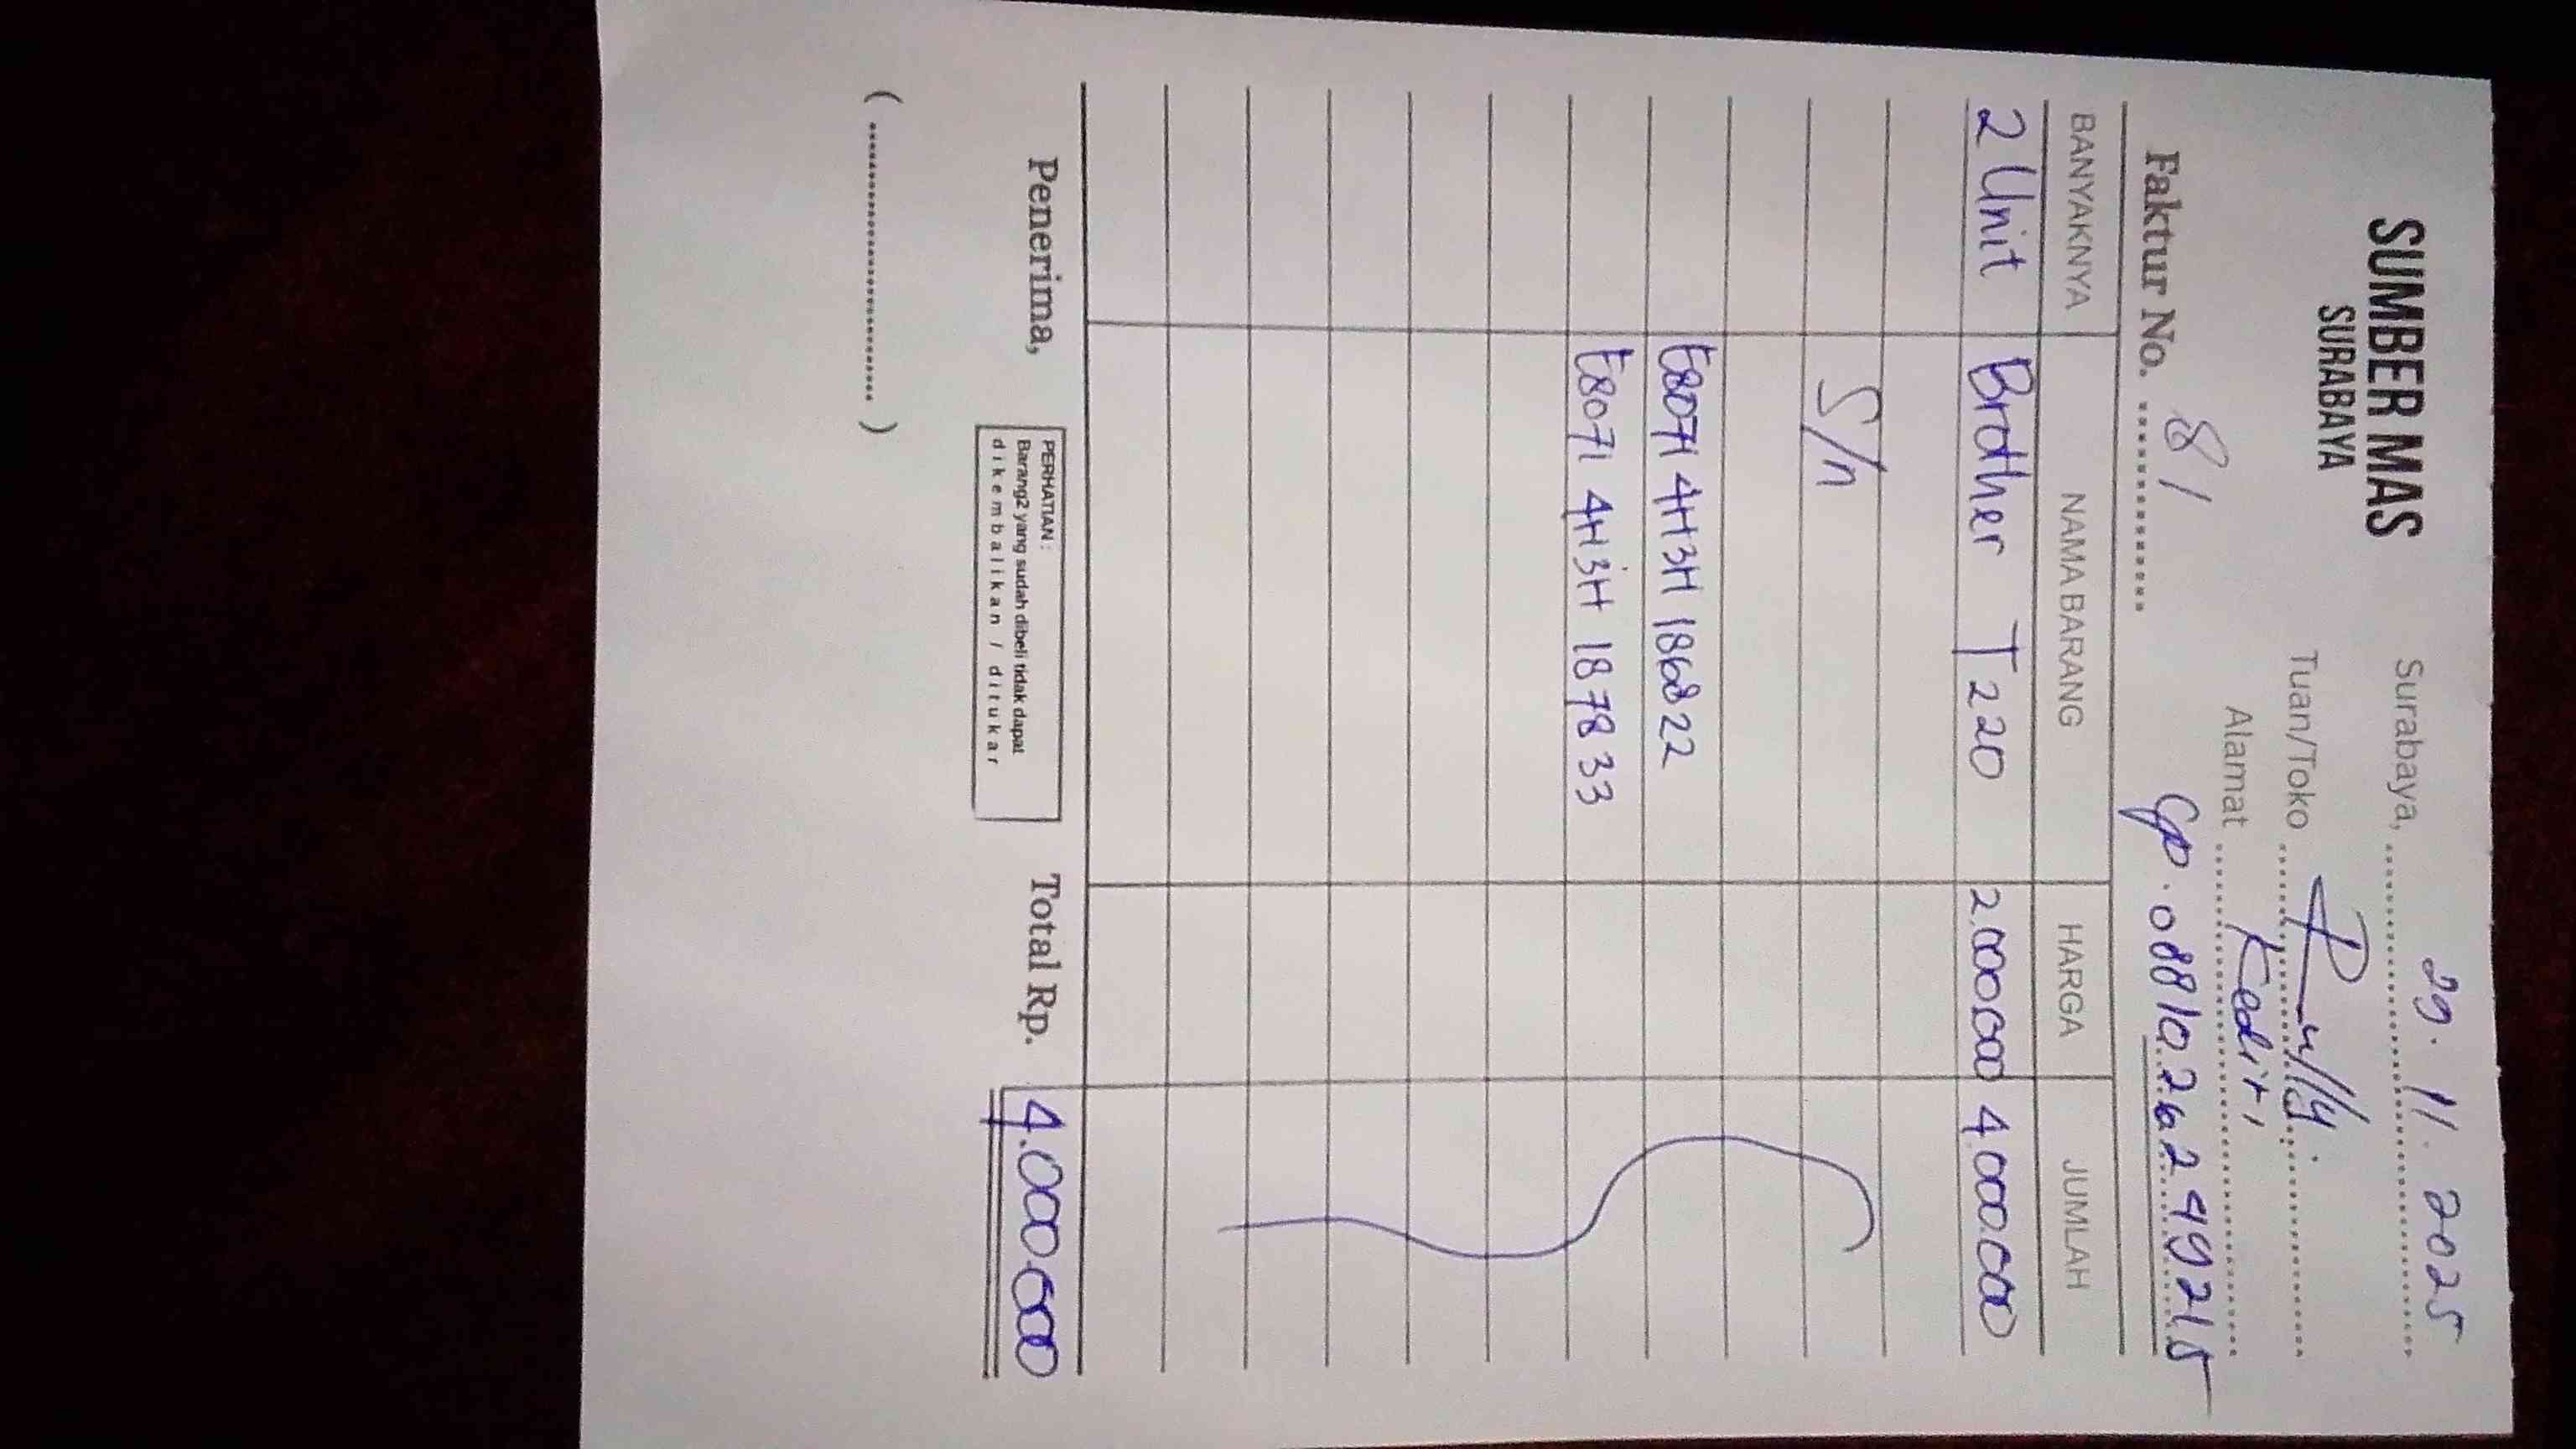 SUMBER MAS
SURABAYA
Surabaya, 29.11.2025
Tuan/Toko Rully
Alamat Kediri
Faktur No. 81
Cp.
BANYAKNYA NAMA BARANG HARGA JUMLAH
2 Unit Brother T220 2.000.000 4.000.000
S/n
E80714H3H186822
E80714H3H187833
Penerima,
PERHATIAN :
Barang2 yang sudah dibeli tidak dapat
dikembalikan / ditukar
Total Rp. 4.000.000
(....................................)